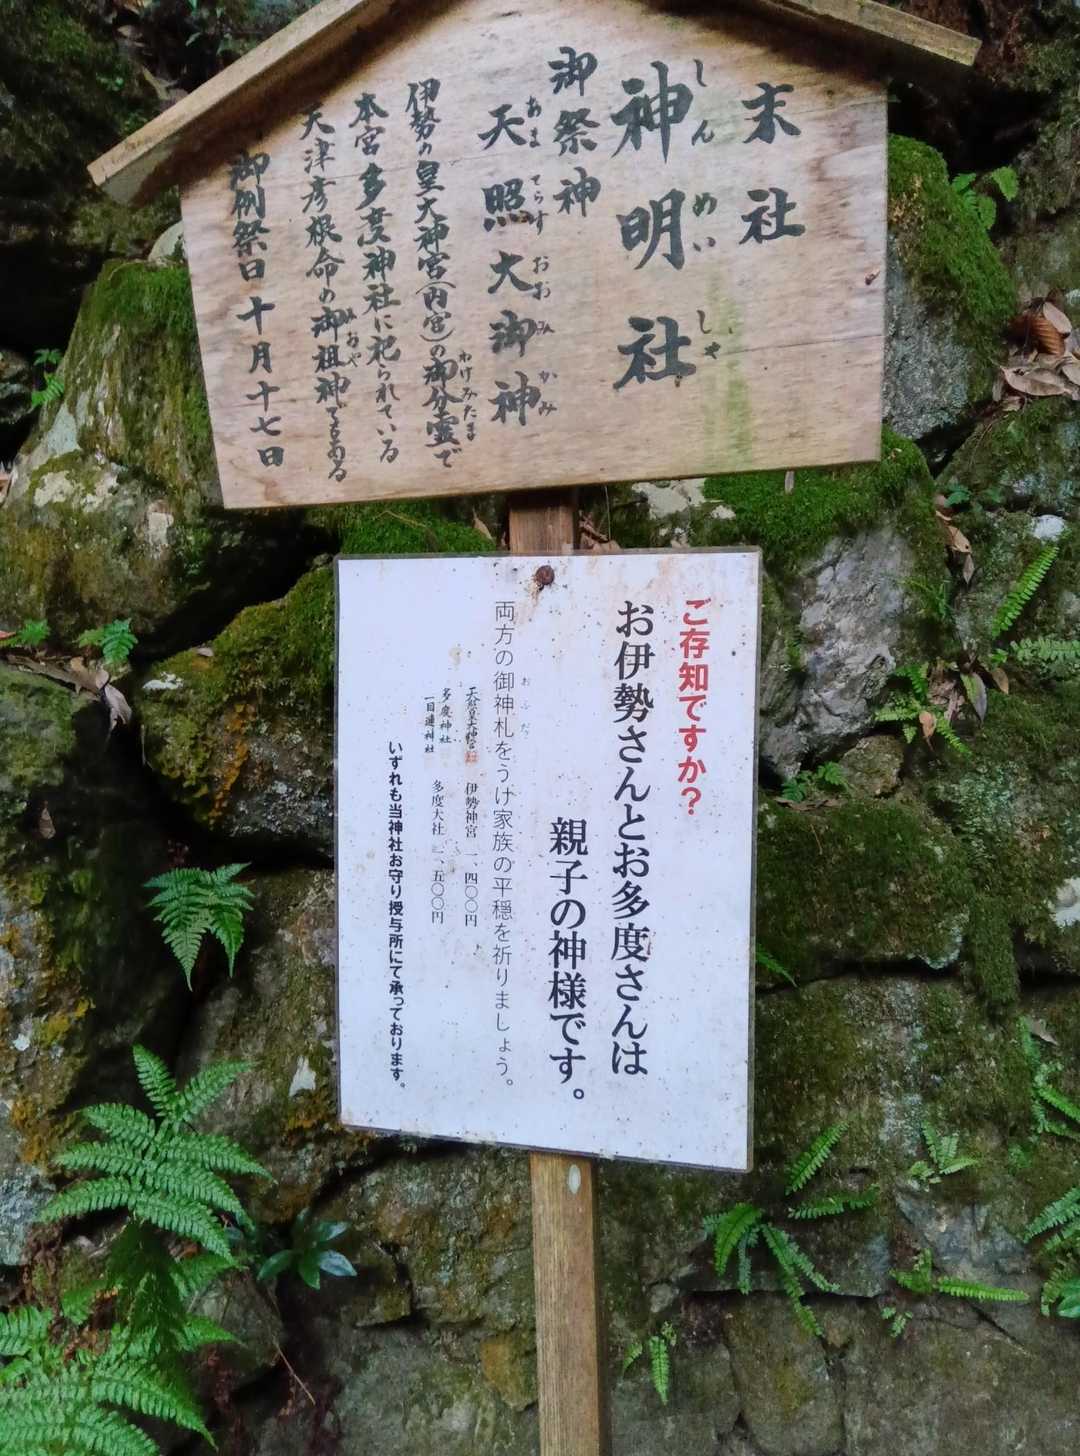 末社
神明社
しんめいしゃ
御祭神
天照大御神
あまてらすおおみかみ
伊勢の皇大神宮(内宮)の御分霊で
わけみたま
本宮多度神社に祀られている
天津彦根命の御祖神である
みおや
御例祭日 十月十七日
ご存知ですか?
お伊勢さんとお多度さんは
親子の神様です。
両方の御神札をうけ家族の平穏を祈りましょう。
おふだ
伊勢神宮 一、四〇〇円
多度神社
一目連神社
多度大社 一、五〇〇円
いずれも当神社お守り授与所にて承っております。